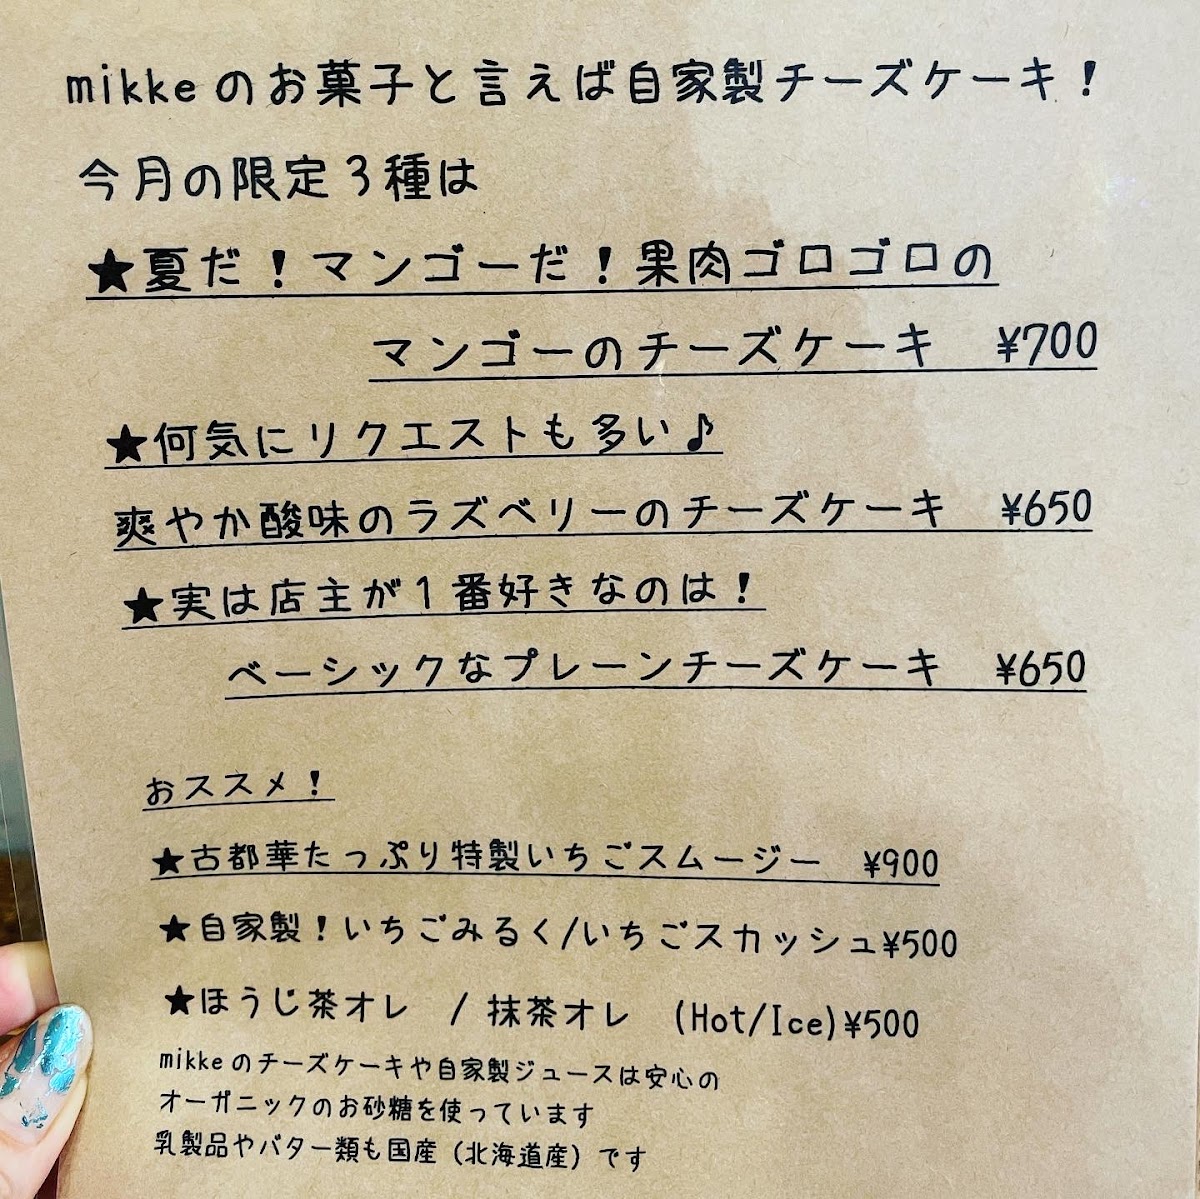 mikkeのお菓子と言えば自家製チーズケーキ！
今月の限定３種は
★夏だ！マンゴーだ！果肉ゴロゴロの
マンゴーのチーズケーキ　¥700
★何気にリクエストも多い♪
爽やか酸味のラズベリーのチーズケーキ　¥650
★実は店主が１番好きなのは！
ベーシックなプレーンチーズケーキ　¥650
おススメ！
★古都華たっぷり特製いちごスムージー　¥900
★自家製！いちごみるく/いちごスカッシュ¥500
★ほうじ茶オレ　/ 抹茶オレ　(Hot/Ice)¥500
mikkeのチーズケーキや自家製ジュースは安心の
オーガニックのお砂糖を使っています
乳製品やバター類も国産（北海道産）です